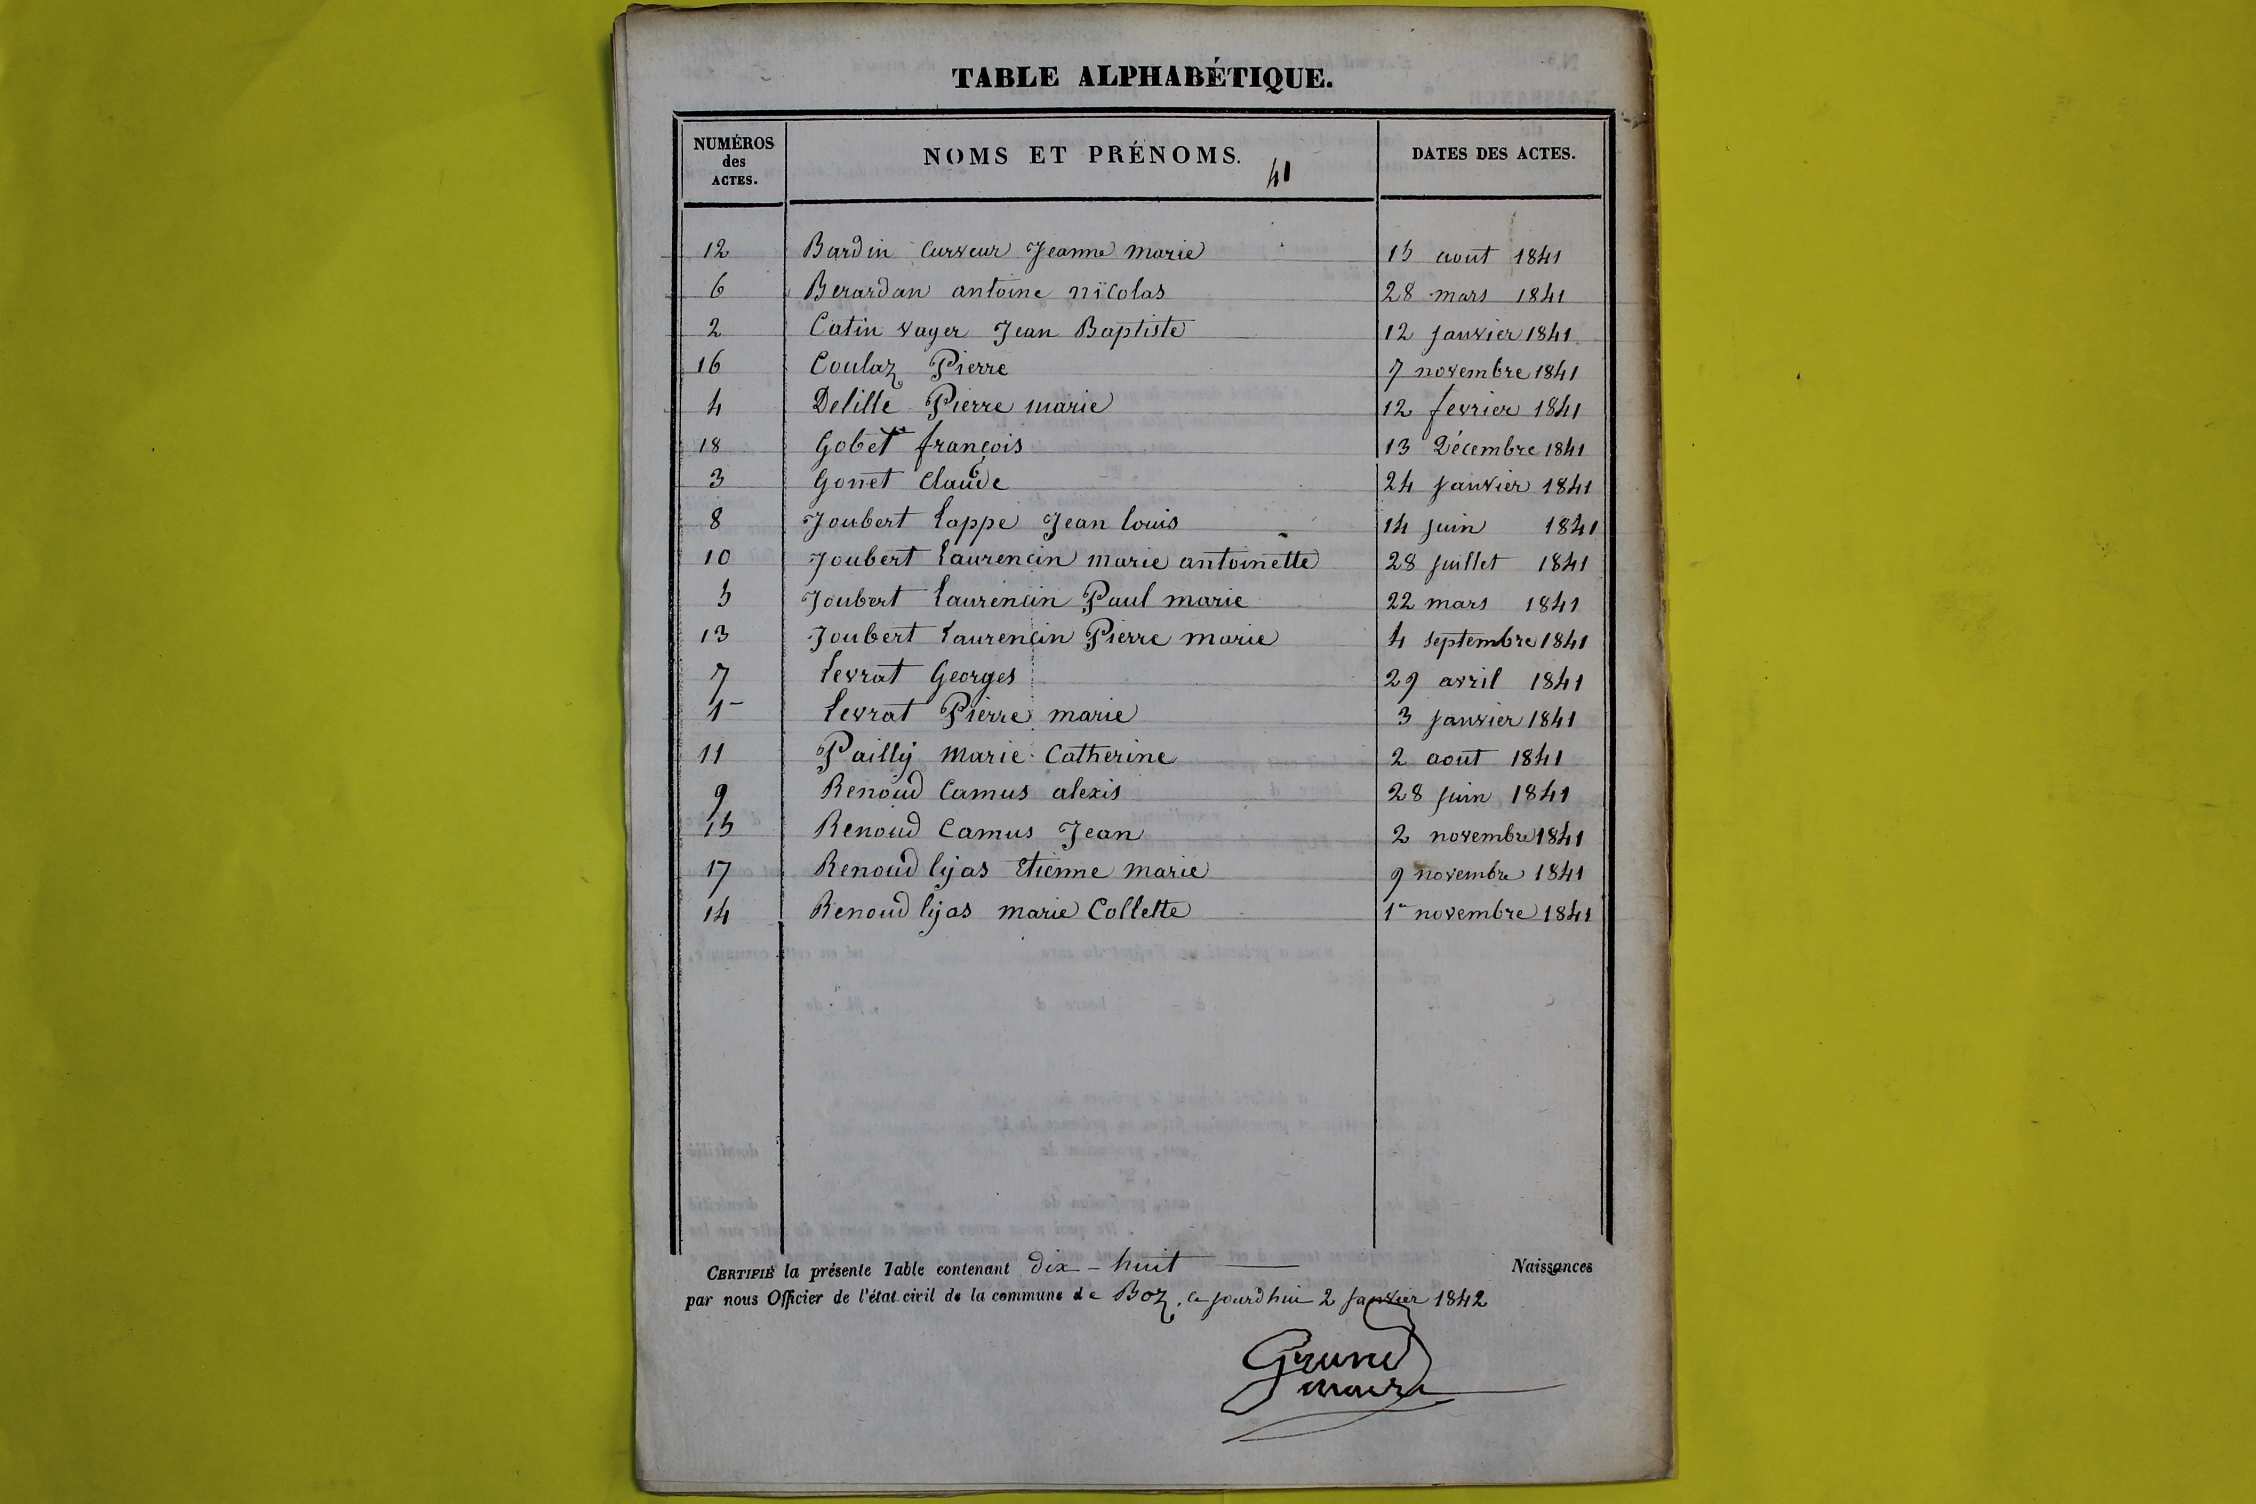 TABLE ALPHABÉTIQUE.
NUMÉROS des ACTES. NOMS ET PRÉNOMS. DATES DES ACTES.
41
12 Bardin Curveur Jeanne Marie 15 aout 1841
6 Berardan antoine nicolas 28 mars 1841
2 Catin vayer Jean Baptiste 12 janvier 1841
16 Coulaz Pierre 7 novembre 1841
4 Delille Pierre marie 12 fevrier 1841
18 Gobet françois 13 Décembre 1841
3 Gonet Claude 24 janvier 1841
8 Joubert lappe Jean louis 14 juin 1841
10 Joubert laurencin marie antoinette 28 juillet 1841
5 Joubert laurencin Paul marie 22 mars 1841
13 Joubert laurencin Pierre marie 4 septembre 1841
7 levrat Georges 29 avril 1841
1 levrat Pierre marie 3 janvier 1841
11 Pailly Marie Catherine 2 aout 1841
9 Renoud Camus alexis 28 juin 1841
15 Renoud Camus Jean 2 novembre 1841
17 Renoud lyas Etienne marie 9 novembre 1841
14 Renoud lyas marie Collette 1er novembre 1841
CERTIFIÉ la présente Table contenant dix-huit Naissances
par nous Officier de l'état civil de la commune de Boz, ce jourd'hui 2 janvier 1842
maire